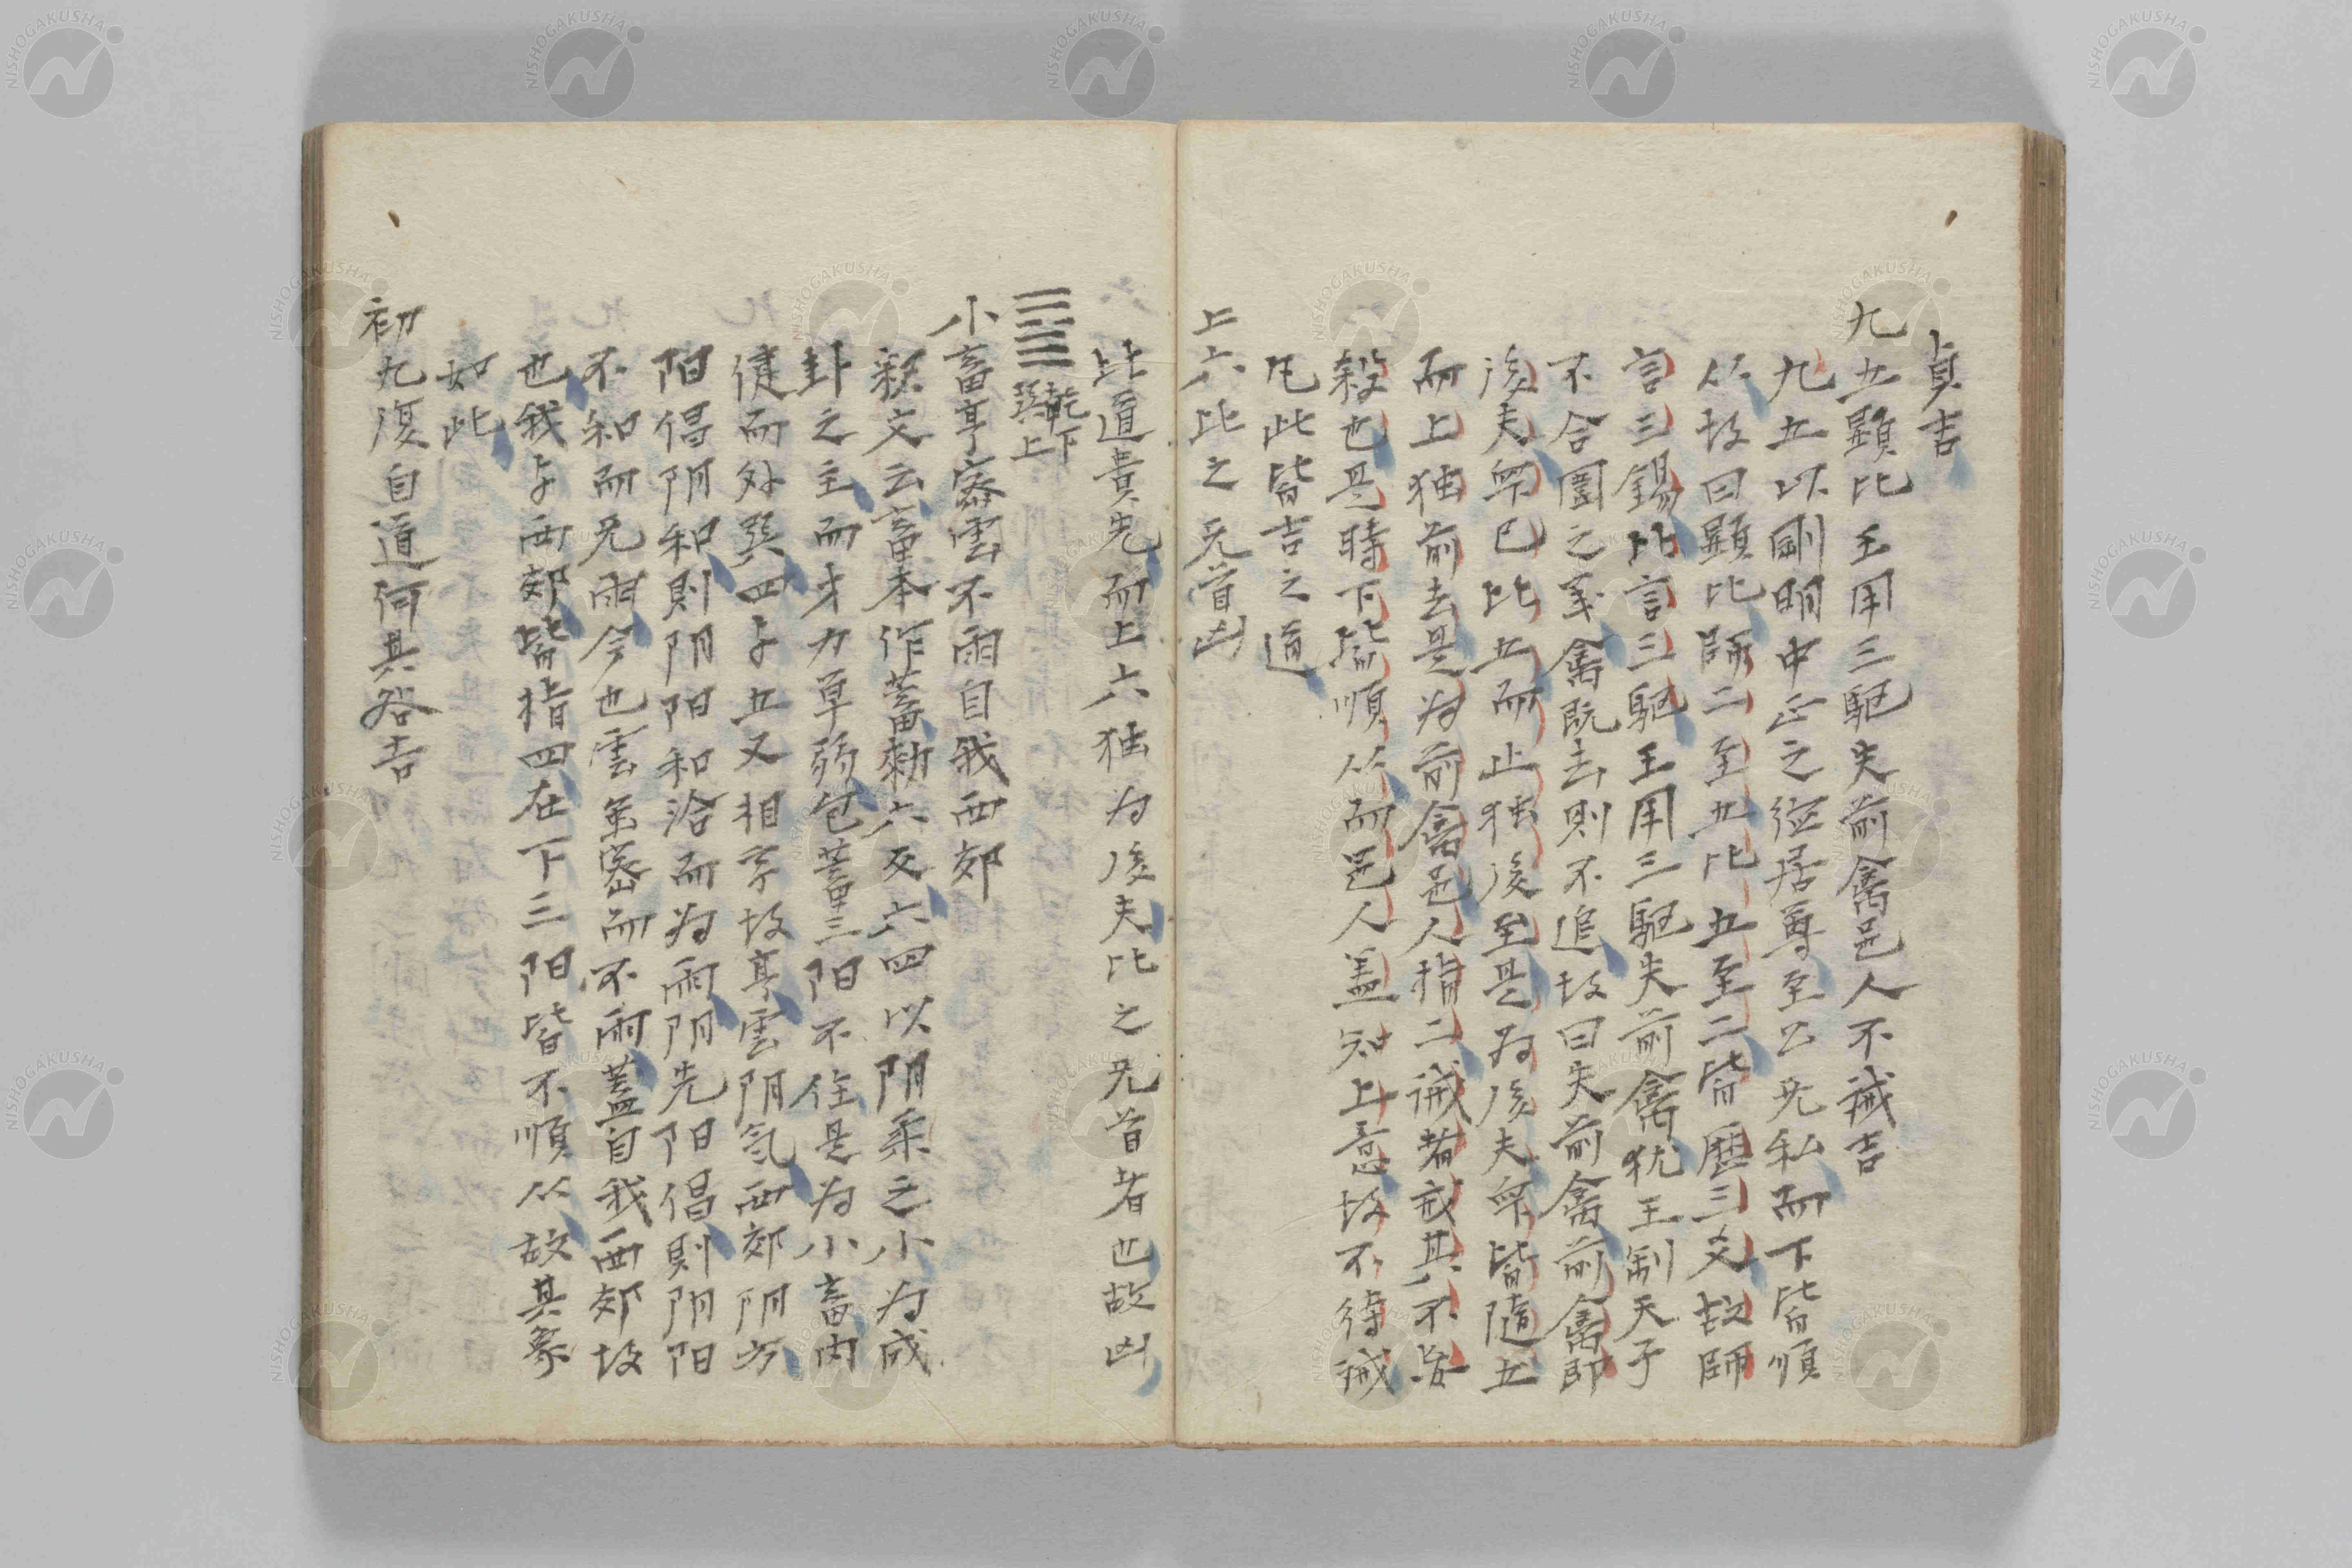 貞吉
九五顯比王用三駆失前禽邑人不誡吉
九五以剛明中正之徳居尊至公旡私而下皆順
从故曰顯比師二至五比五至二皆歴三爻故師
言三錫比言三駆王用三駆失前禽犹王制天子
不合圍之義禽既去則不追故曰失前禽前禽即
後夫卑已比五而止独後至是為後夫卑皆隨五
而上独前去是为前禽邑人指二誡者戒其不
殺也是時下皆順从而邑人盖知上意故不待誡
凡此皆吉之道
上六比之旡首凶
比道貴先而上六独为後夫比之旡首者也故凶
乾下
巽上
小畜亨密雲不雨自我西郊
釈文云畜本作蓄勅六反六四以阴柔之小为成
卦之主而才力单弱包蓄三阳不住是为小畜内
健而外巽四与五又相孚故亨雲阴気西郊阴方
阳倡阴和則阴阳和洽而为雨阴先阳倡則阴阳
不和而旡雨今也雲虽密而不雨蓋自我西郊故
也我与西郊皆指四在下三阳皆不順从故其象
如此
初九復自道何其咎吉
NISHOGAKUSHA